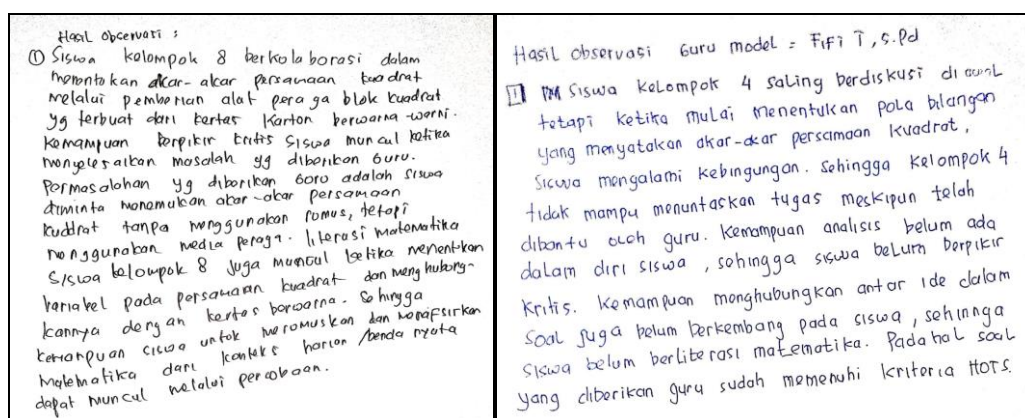 Hasil observasi :
① Siswa kelompok 8 berkolaborasi dalam
menentukan akar-akar persamaan kuadrat
melalui pemberian alat peraga blok kuadrat
yg terbuat dari kertas karton berwarna-warni.
Kemampuan berpikir kritis siswa muncul ketika
menyelesaikan masalah yg diberikan Guru.
Permasalahan yg diberikan Guru adalah siswa
diminta menemukan akar-akar persamaan
kuadrat tanpa menggunakan rumus, tetapi
menggunakan media peraga. literasi matematika
siswa kelompok 8 juga muncul ketika menentukan
variabel pada persamaan kuadrat dan menghubung-
kannya dengan kertas berwarna. Sehingga
kemampuan siswa untuk merumuskan dan menafsirkan
matematika dari konteks harian /benda nyata
dapat muncul melalui percobaan.
Hasil observasi Guru model = FiFi T, S.Pd
1 Siswa Kelompok 4 saling berdiskusi di awal
tetapi ketika mulai menentukan pola bilangan
yang menyatakan akar-akar persamaan kuadrat,
siswa mengalami kebingungan. Sehingga kelompok 4
tidak mampu menuntaskan tugas meskipun telah
dibantu oleh guru. Kemampuan analisis belum ada
dalam diri siswa, sehingga siswa belum berpikir
kritis. Kemampuan menghubungkan antar ide dalam
soal juga belum berkembang pada siswa, sehinnga
siswa belum berliterasi matematika. Padahal soal
yang diberikan guru sudah memenuhi kriteria HOTS.